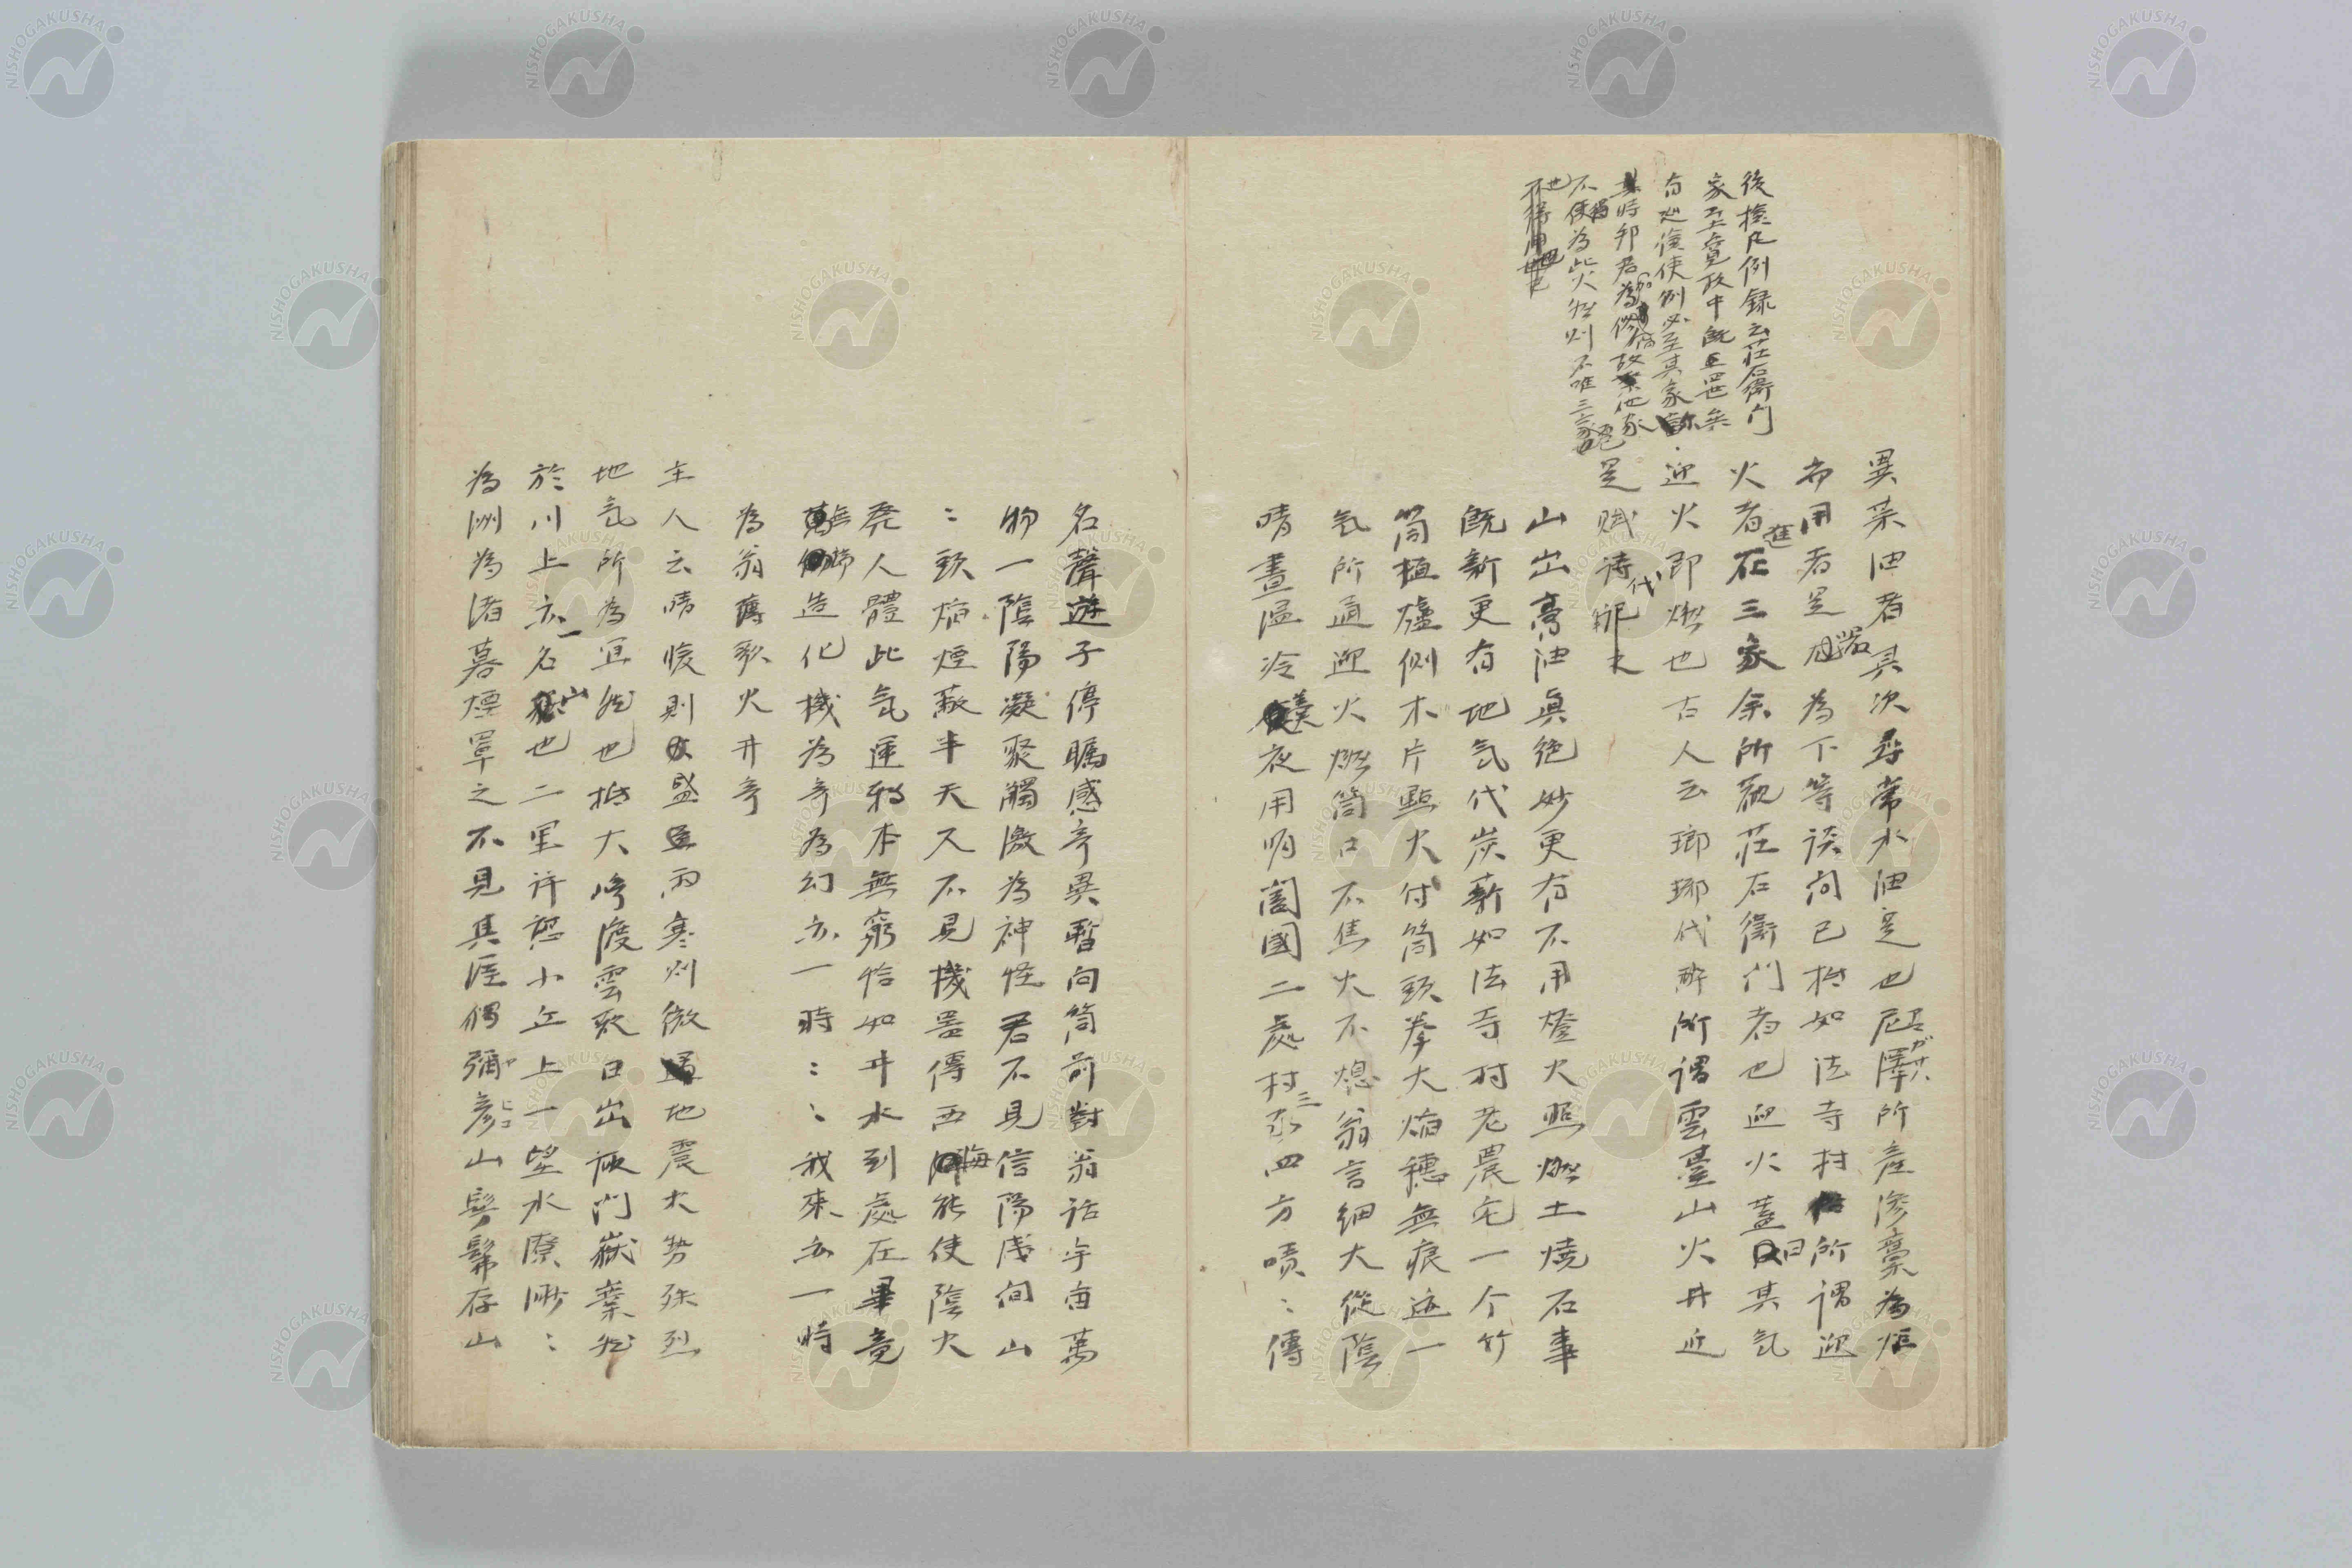 後檢凡例録云荘右衛門
家至寛政中既五世矣
有巡後使例必至其家
其時邦君為修故他家
不使為此火然則不唯三家
異菜油者其次尋常水油是也尼澤所産滲藁為炬
而用者是為下等談向已於如法寺村所謂迎
火者在三家余所観荘右衛門者也迎火蓋曰其気
迎火即燃也古人云瑯琊代酔所謂雲臺山火井近
是賦詩代記之
山出膏油真絶妙更有不用燈火照燃土焼石事
既新更有地気代炭薪如法寺村老農宅一个竹
筒植爐側木片點火付筒頭拳大焔穂無痕迹一
気所通迎火燃筒口不焦火不熄翁言細大從陰
晴晝温冷羹夜用明闔國二處村三家四方嘖〻傳
名聲遊子停矚感奇異暫向筒前對翁話宇宙萬
物一陰陽凝聚觸激為神怪君不見信陽浅間山
〻頭焔煙蔽半天又不見機器傳西海能使陰火
発人體此気運轉本無窮恰如井水到處在畢竟
無物造化機為奇為幻亦一時〻〻我來亦一時
為翁薄歌火井奇
主人云晴暖則盛雨寒則微地震大勢殊烈
地気所為宜然也抵大崎渡雲歌日出彼門嶽棄然
於川上亦一名山也二里許憩小丘上一望水縹渺〻
為洲為渚暮煙罩之不見其涯偶彌彦山髣髴存山
ヤ
ヒコ